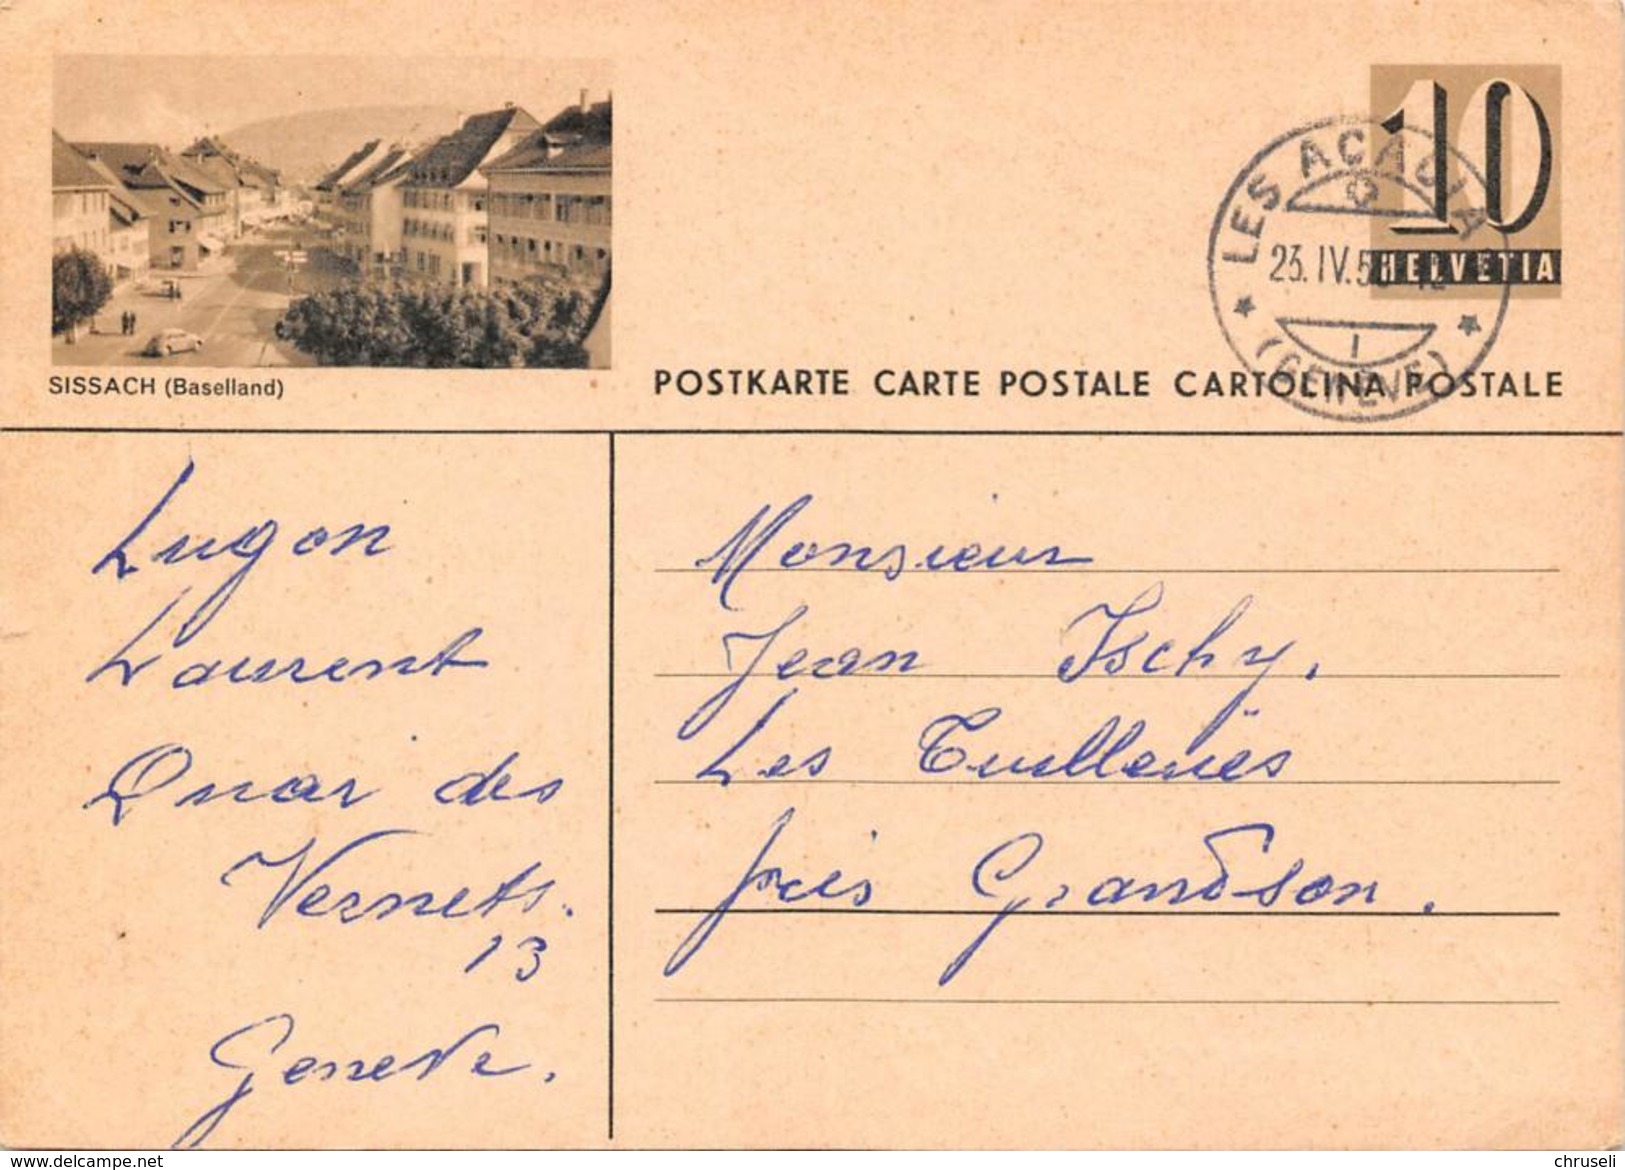 10
HELVETIA
LES ACACIA
23. IV. 5
1
(GENÈVE)
SISSACH (Baselland)
POSTKARTE CARTE POSTALE CARTOLINA POSTALE
Lugon
Laurent
Quai des
Vernets.
13
Genève.
Monsieur
Jean Ischy.
Les Tuilleries
près Grandson.
www.delcampe.net
chruseli